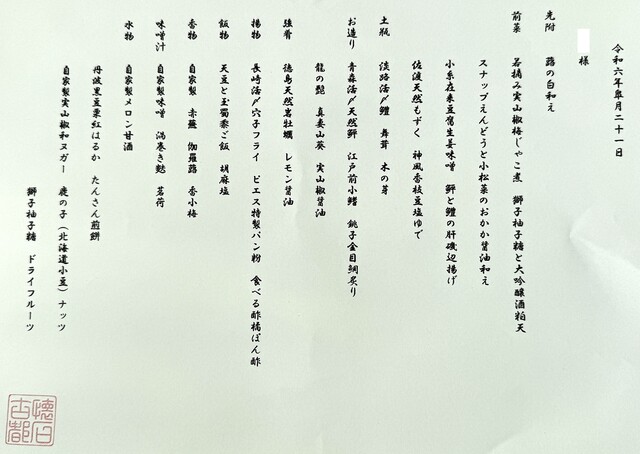 令和六年皐月二十一日
様
先附 蕗の白和え
前菜 若摘み実山椒梅じゃこ煮 獅子柚子糖と大吟醸酒粕天
スナップえんどうと小松菜のおかか醤油和え
小糸在来豆腐生姜味噌 鮃と鱧の肝磯辺揚げ
佐渡天然もずく 神風香枝豆塩ゆで
土瓶 淡路活〆鱧 舞茸 木の芽
お造り 青森活〆天然鮃 江戸前小鰭 銚子金目鯛炙り
龍の髭 真妻山葵 実山椒醤油
強肴 徳島天然岩牡蠣 レモン醤油
揚物 長崎活〆穴子フライ ビエス特製パン粉 食べる酢橘ぽん酢
飯物 天豆と玉蜀黍ご飯 胡麻塩
香物 自家製 赤蕪 伽羅蕗 香小梅
味噌汁 自家製味噌 渦巻き麩 茗荷
水物 自家製メロン甘酒
丹波黒豆栗紅はるか たんさん煎餅
自家製実山椒和ヌガー 鹿の子（北海道小豆）ナッツ
獅子柚子糖 ドライフルーツ
懐日
古都